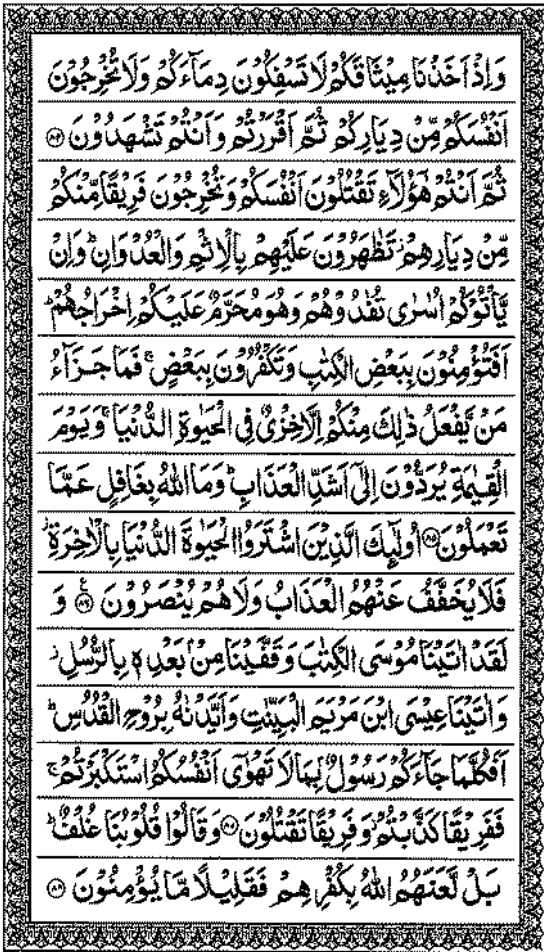 وَاِذْ اَخَذْنَا مِيْثَاقَكُمْ لَا تَسْفِكُوْنَ دِمَآءَكُمْ وَلَا تُخْرِجُوْنَ
اَنْفُسَكُمْ مِّنْ دِيَارِكُمْ ثُمَّ اَقْرَرْتُمْ وَاَنْتُمْ تَشْهَدُوْنَ ﴿۸۴﴾
ثُمَّ اَنْتُمْ هٰٓؤُلَآءِ تَقْتُلُوْنَ اَنْفُسَكُمْ وَتُخْرِجُوْنَ فَرِيْقًا مِّنْكُمْ
مِّنْ دِيَارِهِمْ ز تَظٰهَرُوْنَ عَلَيْهِمْ بِالْاِثْمِ وَالْعُدْوَانِ ؕ وَاِنْ
يَّاْتُوْكُمْ اُسٰرٰى تُفٰدُوْهُمْ وَهُوَ مُحَرَّمٌ عَلَيْكُمْ اِخْرَاجُهُمْ ؕ
اَفَتُؤْمِنُوْنَ بِبَعْضِ الْكِتٰبِ وَتَكْفُرُوْنَ بِبَعْضٍ ۚ فَمَا جَزَآءُ
مَنْ يَّفْعَلُ ذٰلِكَ مِنْكُمْ اِلَّا خِزْىٌ فِى الْحَيٰوةِ الدُّنْيَا ۚ وَيَوْمَ
الْقِيٰمَةِ يُرَدُّوْنَ اِلٰٓى اَشَدِّ الْعَذَابِ ؕ وَمَا اللّٰهُ بِغَافِلٍ عَمَّا
تَعْمَلُوْنَ ﴿۸۵﴾ اُولٰٓئِكَ الَّذِيْنَ اشْتَرَوُا الْحَيٰوةَ الدُّنْيَا بِالْاٰخِرَةِ ز
فَلَا يُخَفَّفُ عَنْهُمُ الْعَذَابُ وَلَا هُمْ يُنْصَرُوْنَ ﴿۸۶﴾ ع وَ
لَقَدْ اٰتَيْنَا مُوْسَى الْكِتٰبَ وَقَفَّيْنَا مِنْۢ بَعْدِهٖ بِالرُّسُلِ ز
وَاٰتَيْنَا عِيْسَى ابْنَ مَرْيَمَ الْبَيِّنٰتِ وَاَيَّدْنٰهُ بِرُوْحِ الْقُدُسِ ؕ
اَفَكُلَّمَا جَآءَكُمْ رَسُوْلٌۢ بِمَا لَا تَهْوٰٓى اَنْفُسُكُمُ اسْتَكْبَرْتُمْ ۚ
فَفَرِيْقًا كَذَّبْتُمْ ز وَفَرِيْقًا تَقْتُلُوْنَ ﴿۸۷﴾ وَقَالُوْا قُلُوْبُنَا غُلْفٌ ؕ
بَلْ لَّعَنَهُمُ اللّٰهُ بِكُفْرِهِمْ فَقَلِيْلًا مَّا يُؤْمِنُوْنَ ﴿۸۸﴾